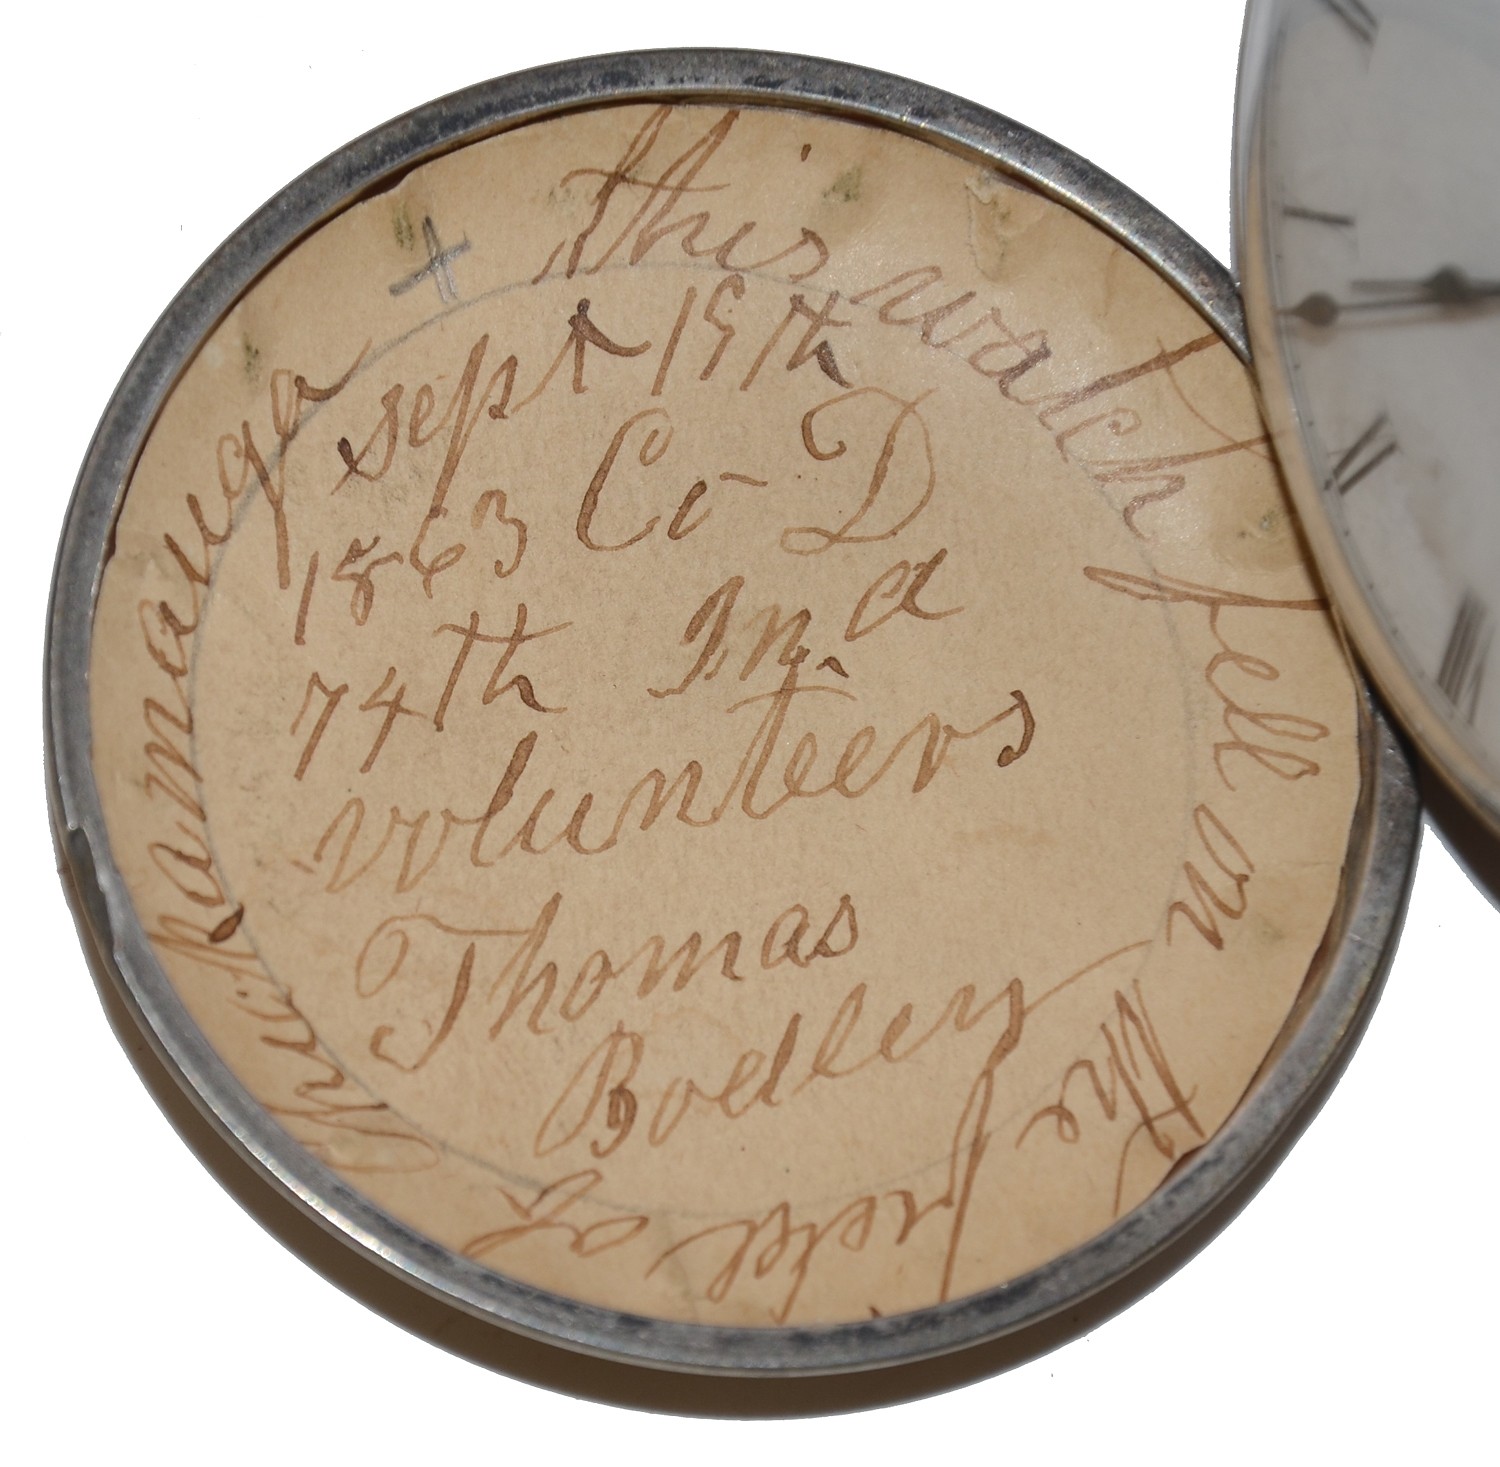 this watch fell on the field of Chickamauga
sept 19th
1863 Co D
74th Ind
volunteers
Thomas
Bodley